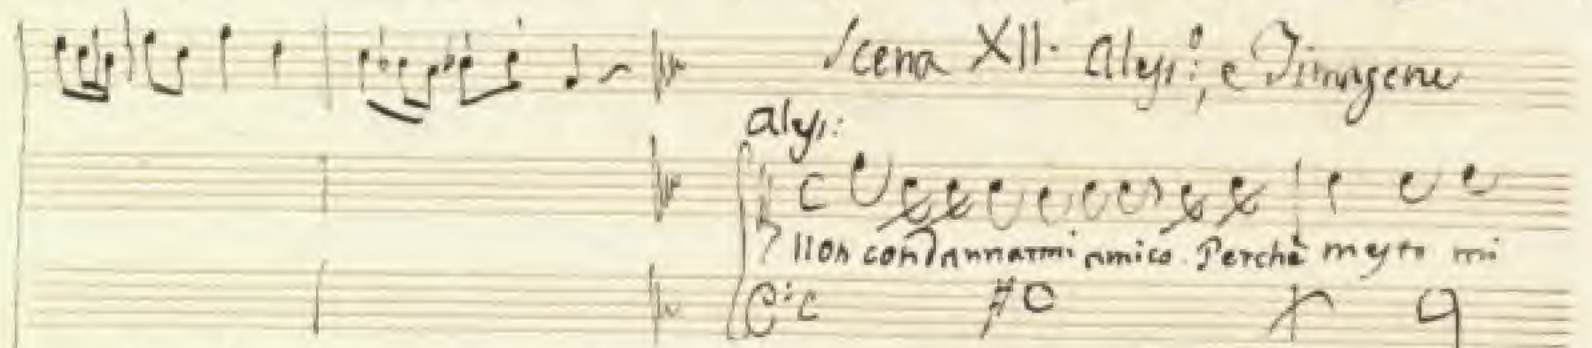 Scena XII. Alessi; e Timagene
Alessi:
Non condannarmi amico. Perchè mesto mi